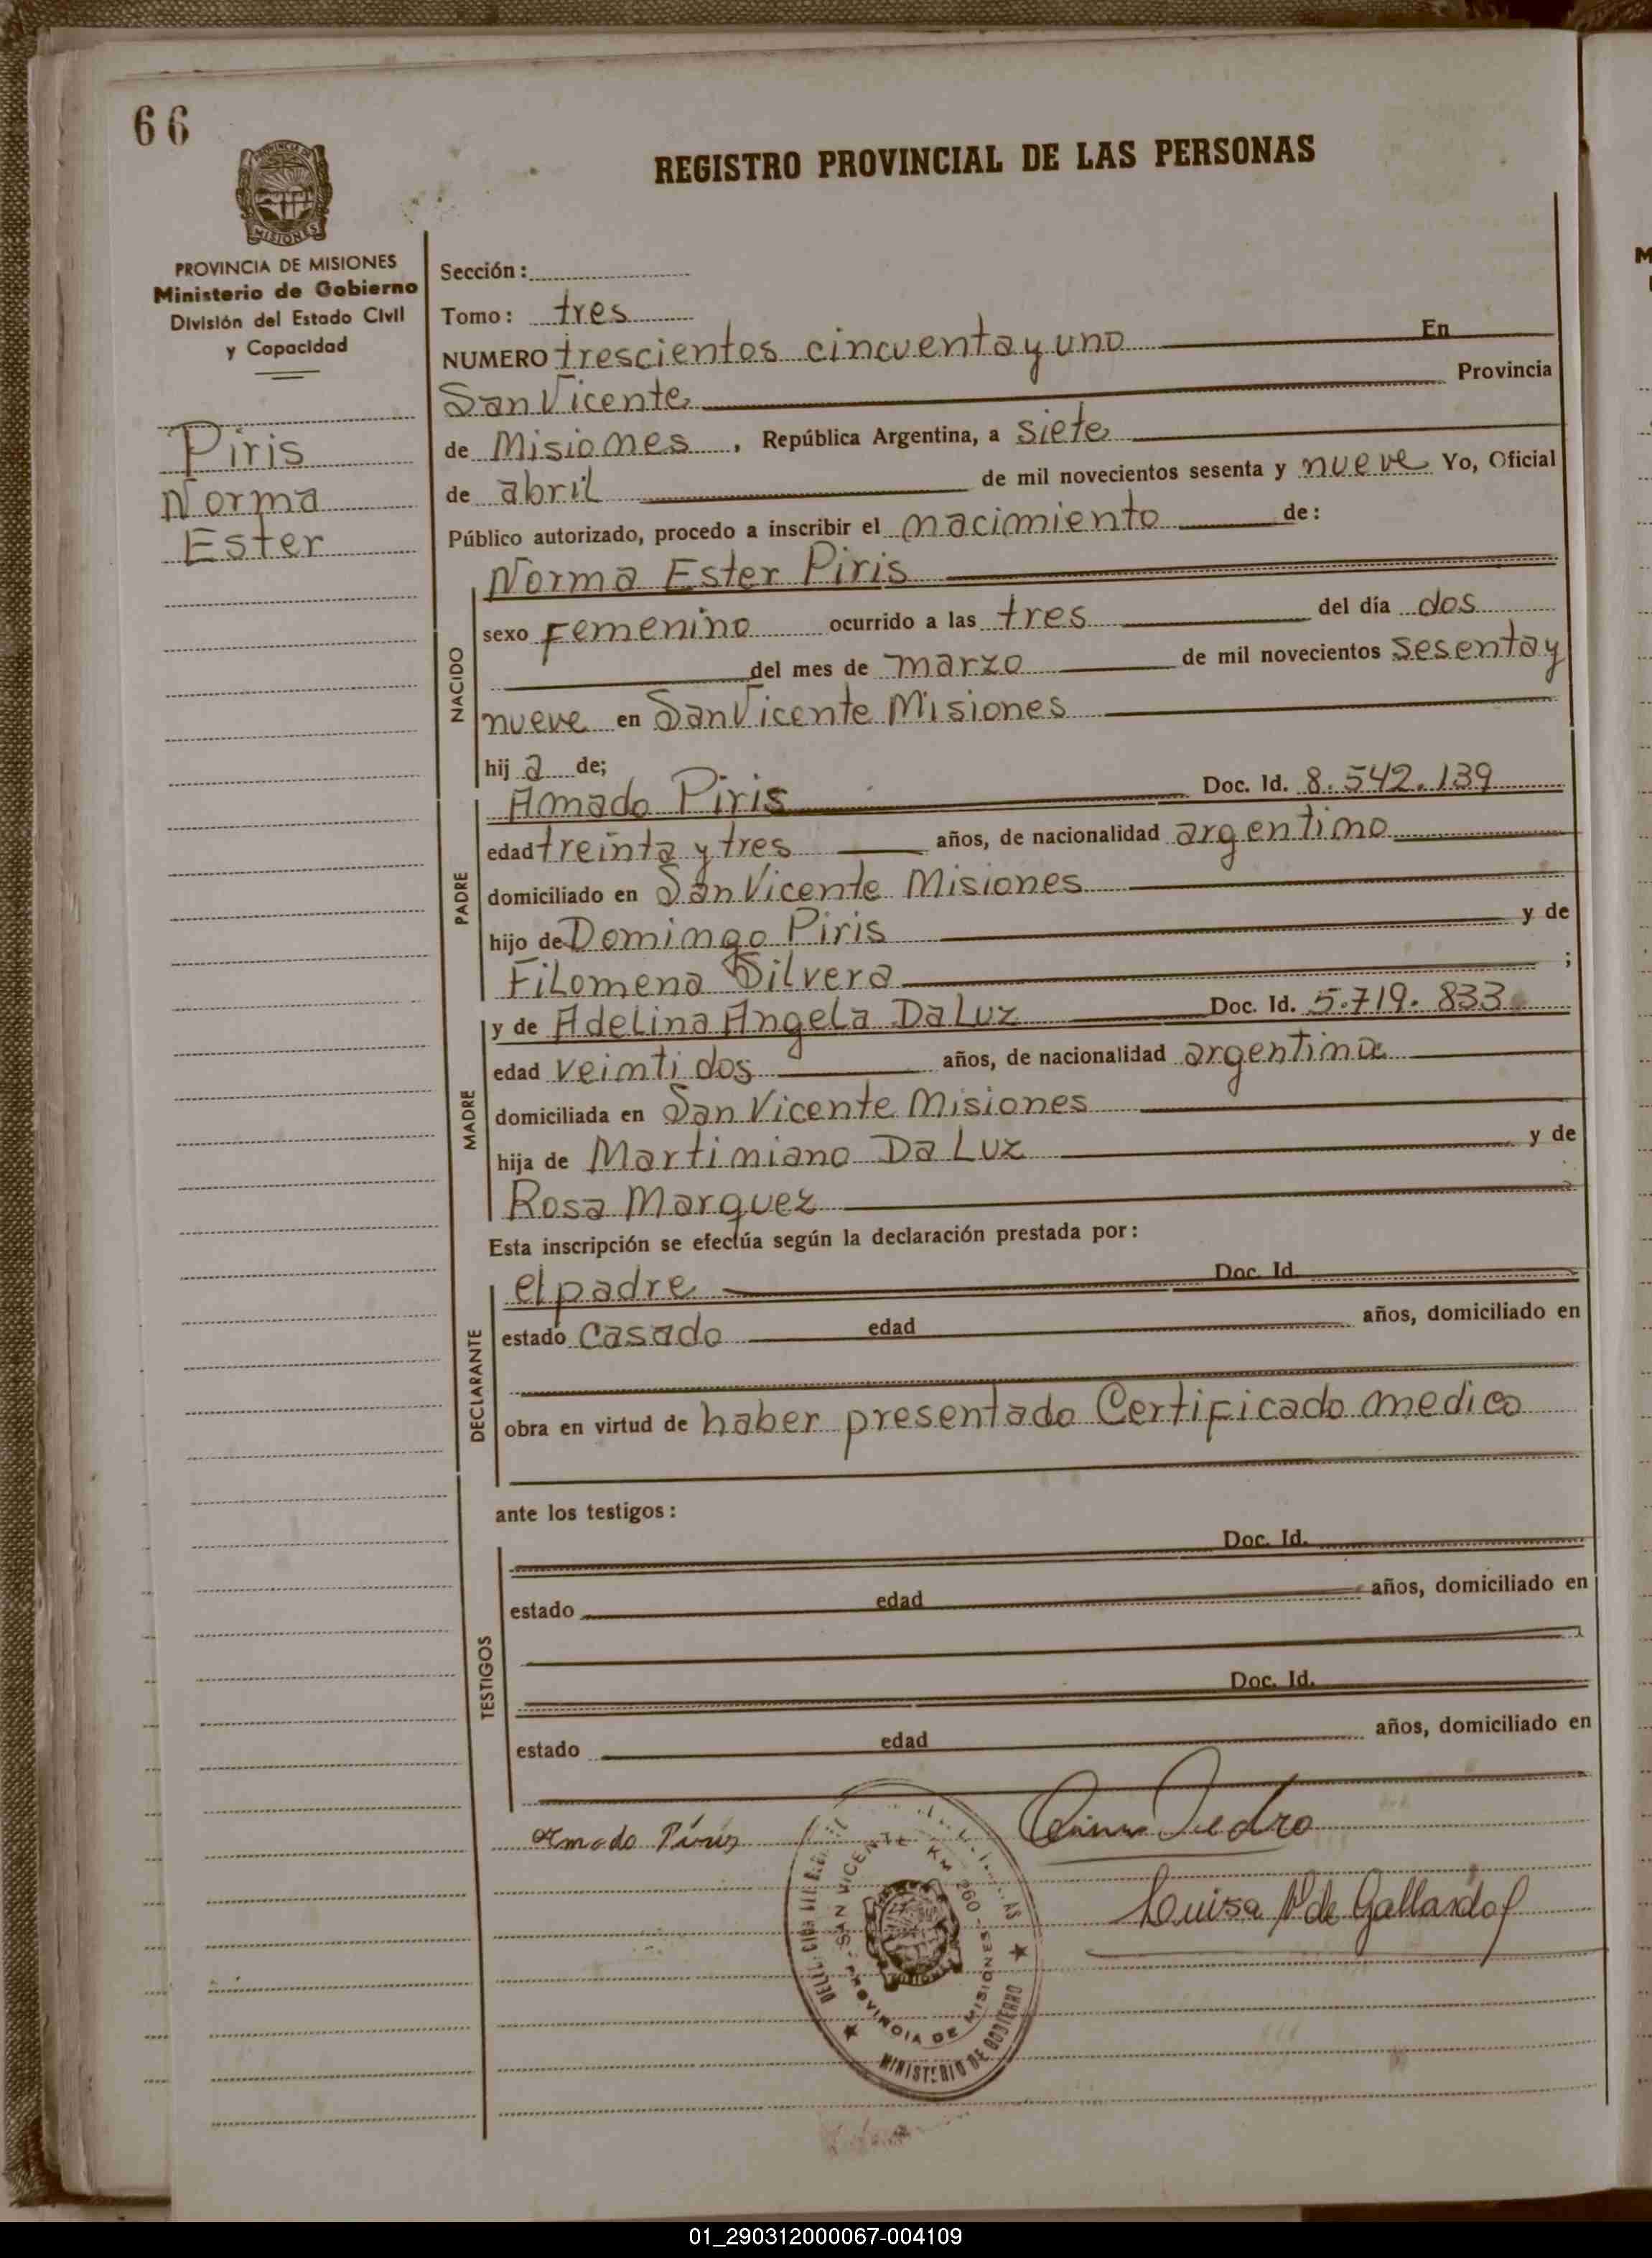 66
PROVINCIA DE
MISIONES
REGISTRO PROVINCIAL DE LAS PERSONAS
PROVINCIA DE MISIONES
Ministerio de Gobierno
División del Estado Civil
y Capacidad
Piris
Norma
Ester
Sección:
Tomo: tres
NUMERO trescientos cincuenta y uno En
San Vicente Provincia
de Misiones, República Argentina, a siete
de abril de mil novecientos sesenta y nueve Yo, Oficial
Público autorizado, procedo a inscribir el nacimiento de:
NACIDO
Norma Ester Piris
sexo Femenino ocurrido a las tres del día dos
del mes de marzo de mil novecientos sesenta y
nueve en San Vicente Misiones
hij a de;
PADRE
Amado Piris Doc. Id. 8.542.139
edad treinta y tres años, de nacionalidad argentino
domiciliado en San Vicente Misiones
hijo de Domingo Piris y de
Filomena Silvera ;
MADRE
y de Adelina Angela Da Luz Doc. Id. 5.719.833
edad veinti dos años, de nacionalidad argentina
domiciliada en San Vicente Misiones
hija de Martimiano Da Luz y de
Rosa Marquez
Esta inscripción se efectúa según la declaración prestada por:
DECLARANTE
el padre Doc. Id.
estado Casado edad años, domiciliado en
obra en virtud de haber presentado Certificado medico
ante los testigos:
TESTIGOS
Doc. Id.
estado edad años, domiciliado en
Doc. Id.
estado edad años, domiciliado en
Amado Piris
Pedro
Luisa de Gallardo
SAN VICENTE KM 260
PROVINCIA DE MISIONES
MINISTERIO DE GOBIERNO
01_290312000067-004109